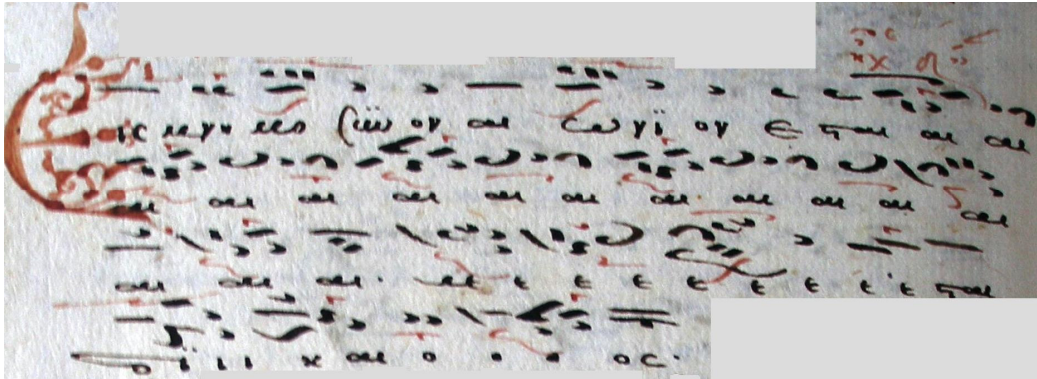 Εις μνη μο συ νον αι ω νϊ ον ε σται αι αι
αι αι αι αι αι αι αι αι αι αι αι
αι αι αι. ε ε ε ε ε ε ε ε ε σται
δϊ ι ι κ αι ο ο ο ος.